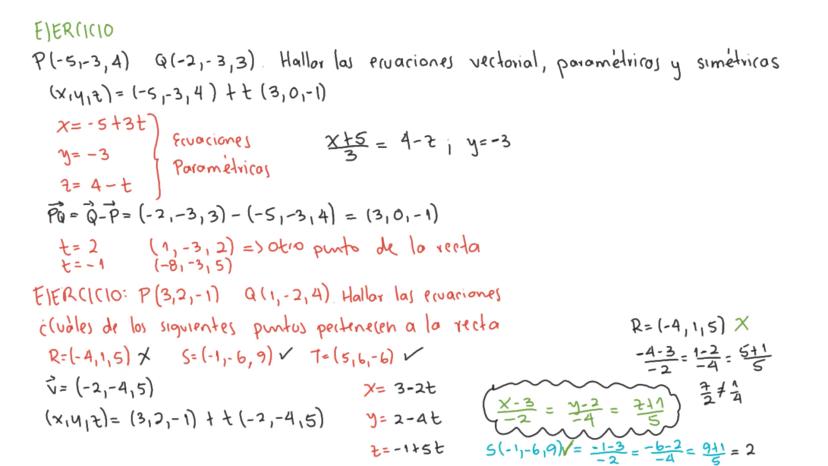 EJERCICIO
P(-5,-3,4) Q(-2,-3,3). Hallar las ecuaciones vectorial, paramétricas y simétricas
(x,y,z) = (-5,-3,4) + t(3,0,-1)
x = -5+3t
y = -3
z = 4-t
Ecuaciones
Paramétricas
x+5/3 = 4-z ; y=-3
PQ = Q-P = (-2,-3,3) - (-5,-3,4) = (3,0,-1)
t=2 (1,-3,2) => otro punto de la recta
t=-1 (-8,-3,5)
EJERCICIO: P(3,2,-1) Q(1,-2,4) Hallar las ecuaciones
¿Cuáles de los siguientes puntos pertenecen a la recta
R=(-4,1,5) X S=(-1,-6,9) ✓ T=(5,6,-6) ✓
v = (-2,-4,5)
(x,y,z) = (3,2,-1) + t(-2,-4,5)
x= 3-2t
y= 2-4t
z= -1+5t
x-3/-2 = y-2/-4 = z+1/5
R=(-4,1,5) X
-4-3/-2 = 1-2/-4 = 5+1/5
7/2 ≠ 1/4
S(-1,-6,9)✓ = -1-3/-2 = -6-2/-4 = 9+1/5 = 2